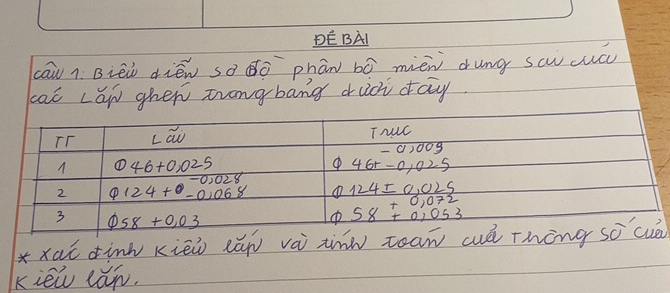 ĐỀ BÀI
câu 1: Biểu diễn sơ đồ phân bố miền dung sai của
các Lắp ghép trong bảng dưới đây.
TT Lỗ Trục
1 Φ46+0,025 Φ46± -0,009 -0,025
2 Φ124+0 -0,028 -0,068 Φ124± 0,025
3 Φ58 +0,03 Φ58 + 0,072 + 0,053
* xác định kiểu lắp và tính toán của Thông số của
kiểu lắp.